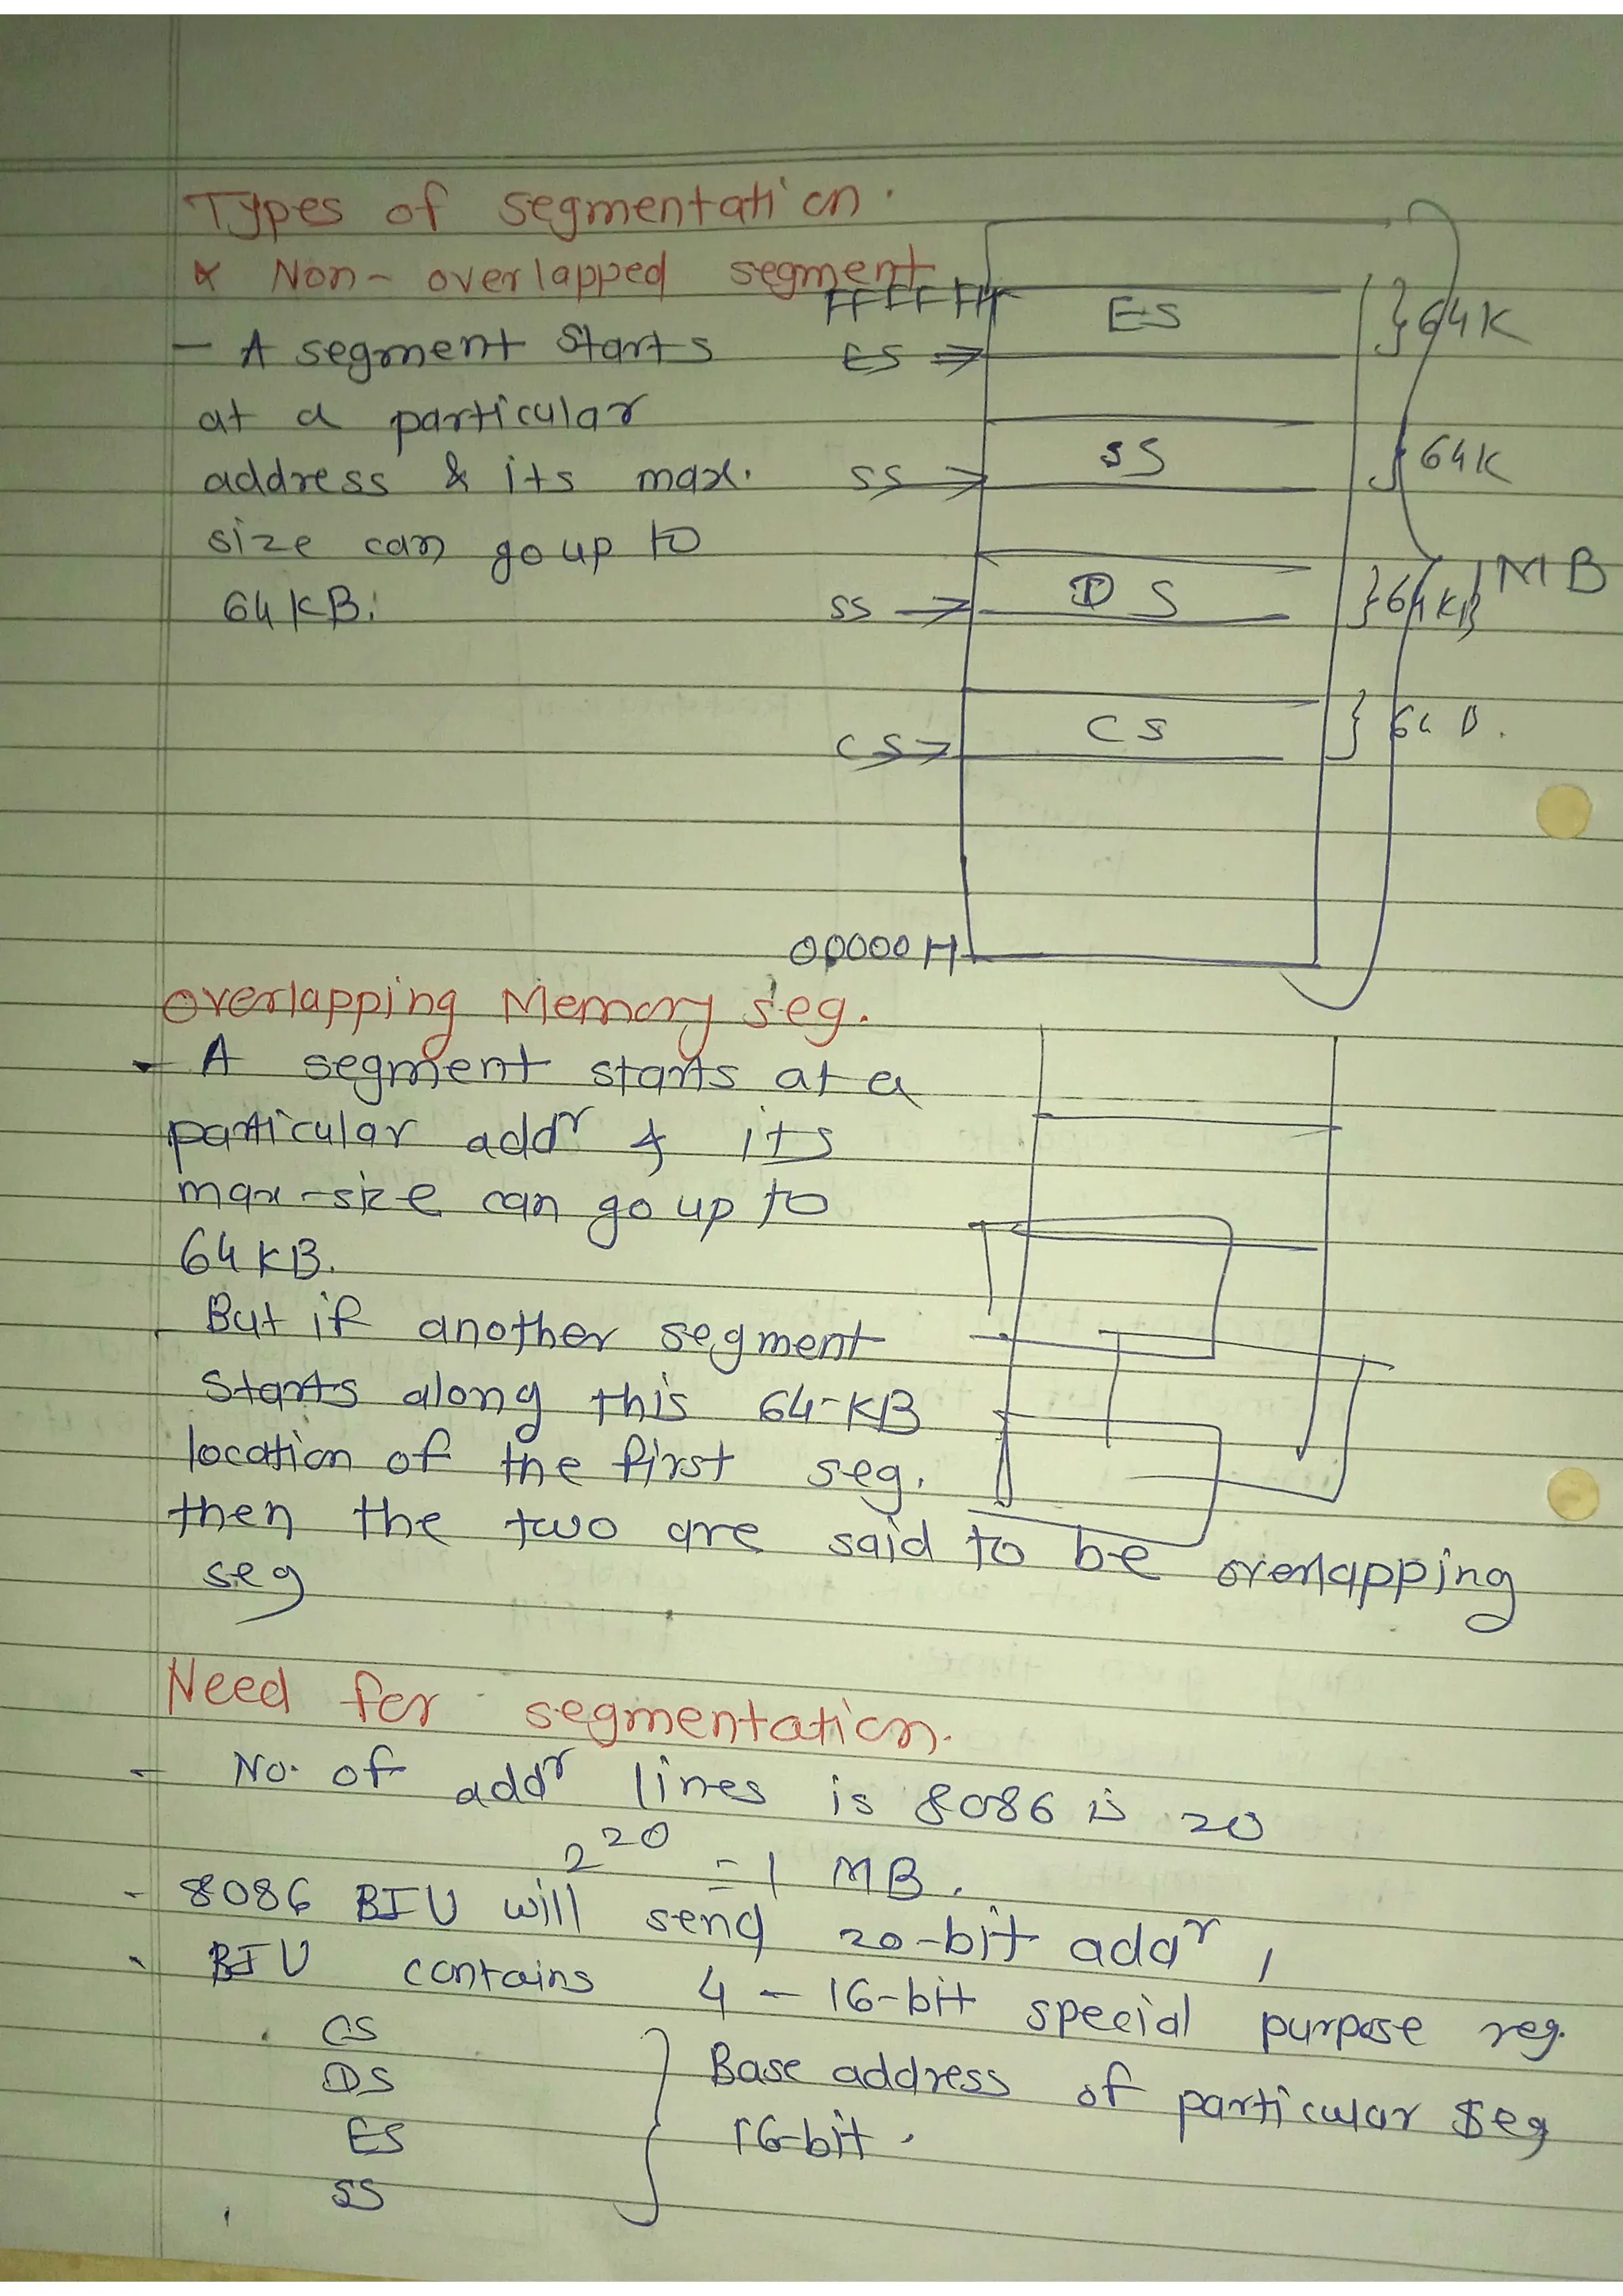 Types of segmentation.
* Non-overlapped segment
FFFFFH
ES
} 64K
- A segment starts
ES ⇒
at a particular
SS
} 64K
address & its max.
SS ⇒
size can go up to
DS
} 64KB
1 MB
64 KB.
SS →
CS
CS →
00000H
Overlapping Memory seg.
- A segment starts at a
particular addr & its
max-size can go up to
64 KB.
But if another segment
starts along this 64-KB
location of the first seg.
then the two are said to be overlapping
seg
Need for segmentation.
- No. of addr lines is 8086 is 20
2^20 = 1 MB.
- 8086 BIU will send 20-bit addr,
- BIU contains 4 - 16-bit special purpose reg.
CS
DS
ES
SS
} Base address of particular seg
16-bit.